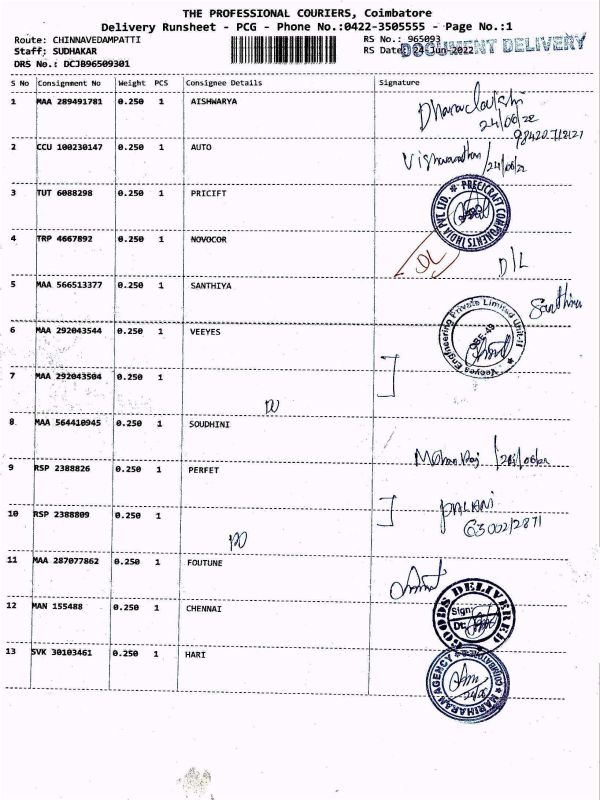 THE PROFESSIONAL COURIERS, Coimbatore
Delivery Runsheet - PCG - Phone No.:0422-3505555 - Page No.:1
Route: CHINNAVEDAMPATTI
Staff: SUDHAKAR
DRS No.: DCJB96509301
RS No.: 965093
RS Date: 24-Jun-2022
DOCUMENT DELIVERY
S No Consignment No Weight PCS Consignee Details Signature
1 MAA 289491781 0.250 1 AISHWARYA
24/06/22
2 CCU 100230147 0.250 1 AUTO
24/06/22
3 TUT 6088298 0.250 1 PRICIFT
PRECICRAFT COMPONENTS INDIA PVT LTD.
4 TRP 4667892 0.250 1 NOVOCOR
DL
D/L
5 MAA 566513377 0.250 1 SANTHIYA
Santhiya
6 MAA 292043544 0.250 1 VEEYES
Veeyes Engineering Private Limited Unit-II
CBE-49
7 MAA 292043504 0.250 1
DO
8 MAA 564410945 0.250 1 SOUDHINI
Mohan Raj
9 RSP 2388826 0.250 1 PERFET
PALANI
10 RSP 2388809 0.250 1
DO
11 MAA 287077862 0.250 1 FOUTUNE
12 MAN 155488 0.250 1 CHENNAI
GOODS DELIVERED
Sign:
Dt:
13 SVK 30103461 0.250 1 HARI
MARIHARAN AGENCY
24/06